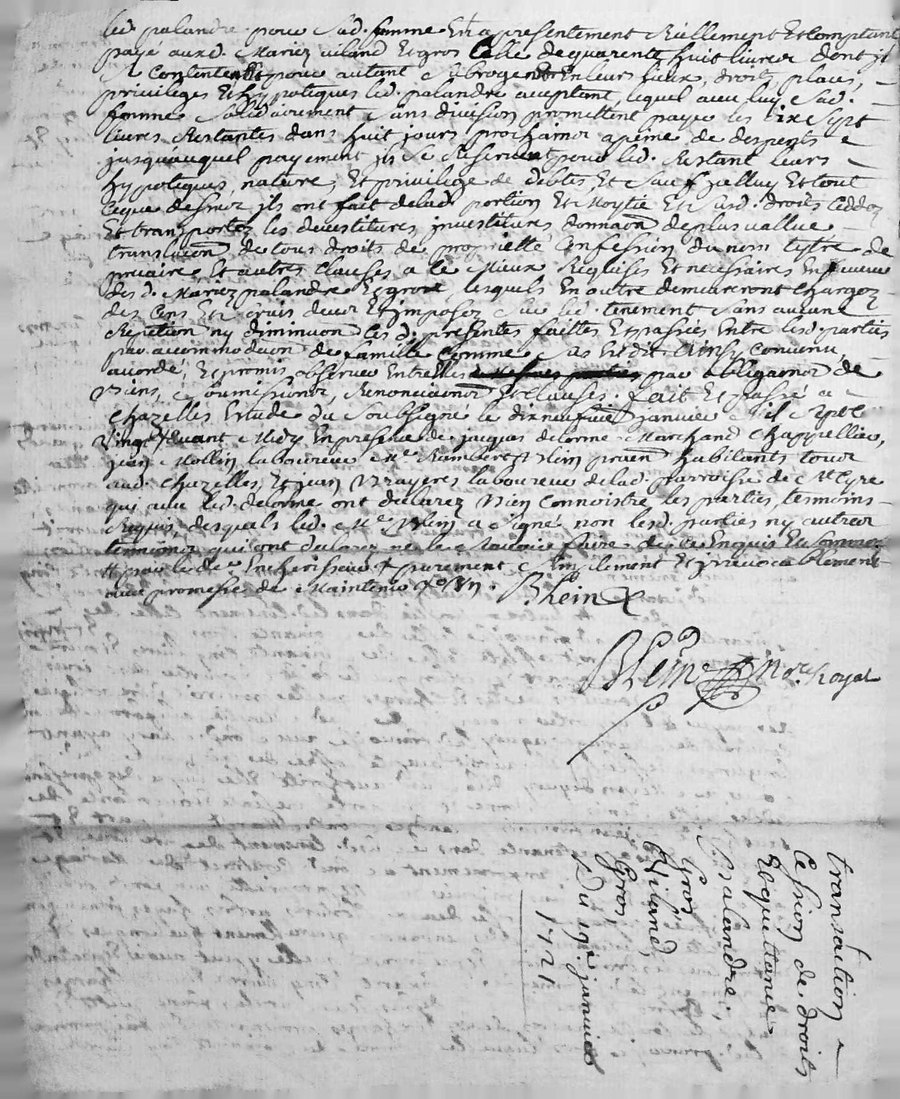 led. palandre pour Sad. femme En a presentement Reellement Et Comptant
payé auxd. Mariez viland Et gros Celle de quarente huit livres dont ils
Se Contentent pour autant Subrogent En leurs lieux, droits, places,
privileges Et hypoteques led. palandre acceptant, lequel avec luy Sad.
femme Solidairement Sans division promettent payer les dix Sept
livres Restantes dans huit jours prochains a peine de despents
jusqu'auquel payement ils Se Reservent pour led. Restant leurs
hypoteques, nature, Et privilege de debtes Et Sauf Et tout
Ceque dessus ils ont fait delad. portion Et Moytié Et Susd. droits Ceddez
Et transportez les devestitures, investitures de plus vallue
de tous droits de proprieté Confession du nom tiltre de
precaire, Et autres Clauses a le Mieux Requises Et necessaires En faveur
des d. Mariez palandre Et gros lesquels En outre demeureront Chargez
des Cens Et deub Et imposez Sur led. tenement Sans aucune
Repetion ny diminuon Les d. presentes faittes Et passées Entre lesd. parties
par accommodaon de famille Comme Sus Est dit Ainsy Convenu
accordé, Et promis observer Entrelles par obligaons de
biens, Soumissions, Renonciaons Et Clauses. fait Et passé a
Chazelles Estude du Soubsigné le dix neufvie janvier Mil Sept
Vingt un avant Midy En presence de jacques delorme Marchand Chappellier,
jean Mollin laboureur Me Rambert Blein praen habitants tous
aud. Chazelles, Et jean Vrayeres laboureur delad. parroisse de St Cyre
qui avec led. delorme ont declarez bien Connoistre les parties, tesmoins
Requis, desquels led. Me Blein a Signé non lesd. parties ny autres
tesmoins qui ont declarez ne le Scavoir faire de ce Enquis Et
purement Simplement Et irrevocablement
avec promesse de Maintenir
Blein
Blein no.re Royal
transaction
Cession de droits
Et quittance
Palandre,
Gros
Viland,
Gros,
Du 19e janvier
1721